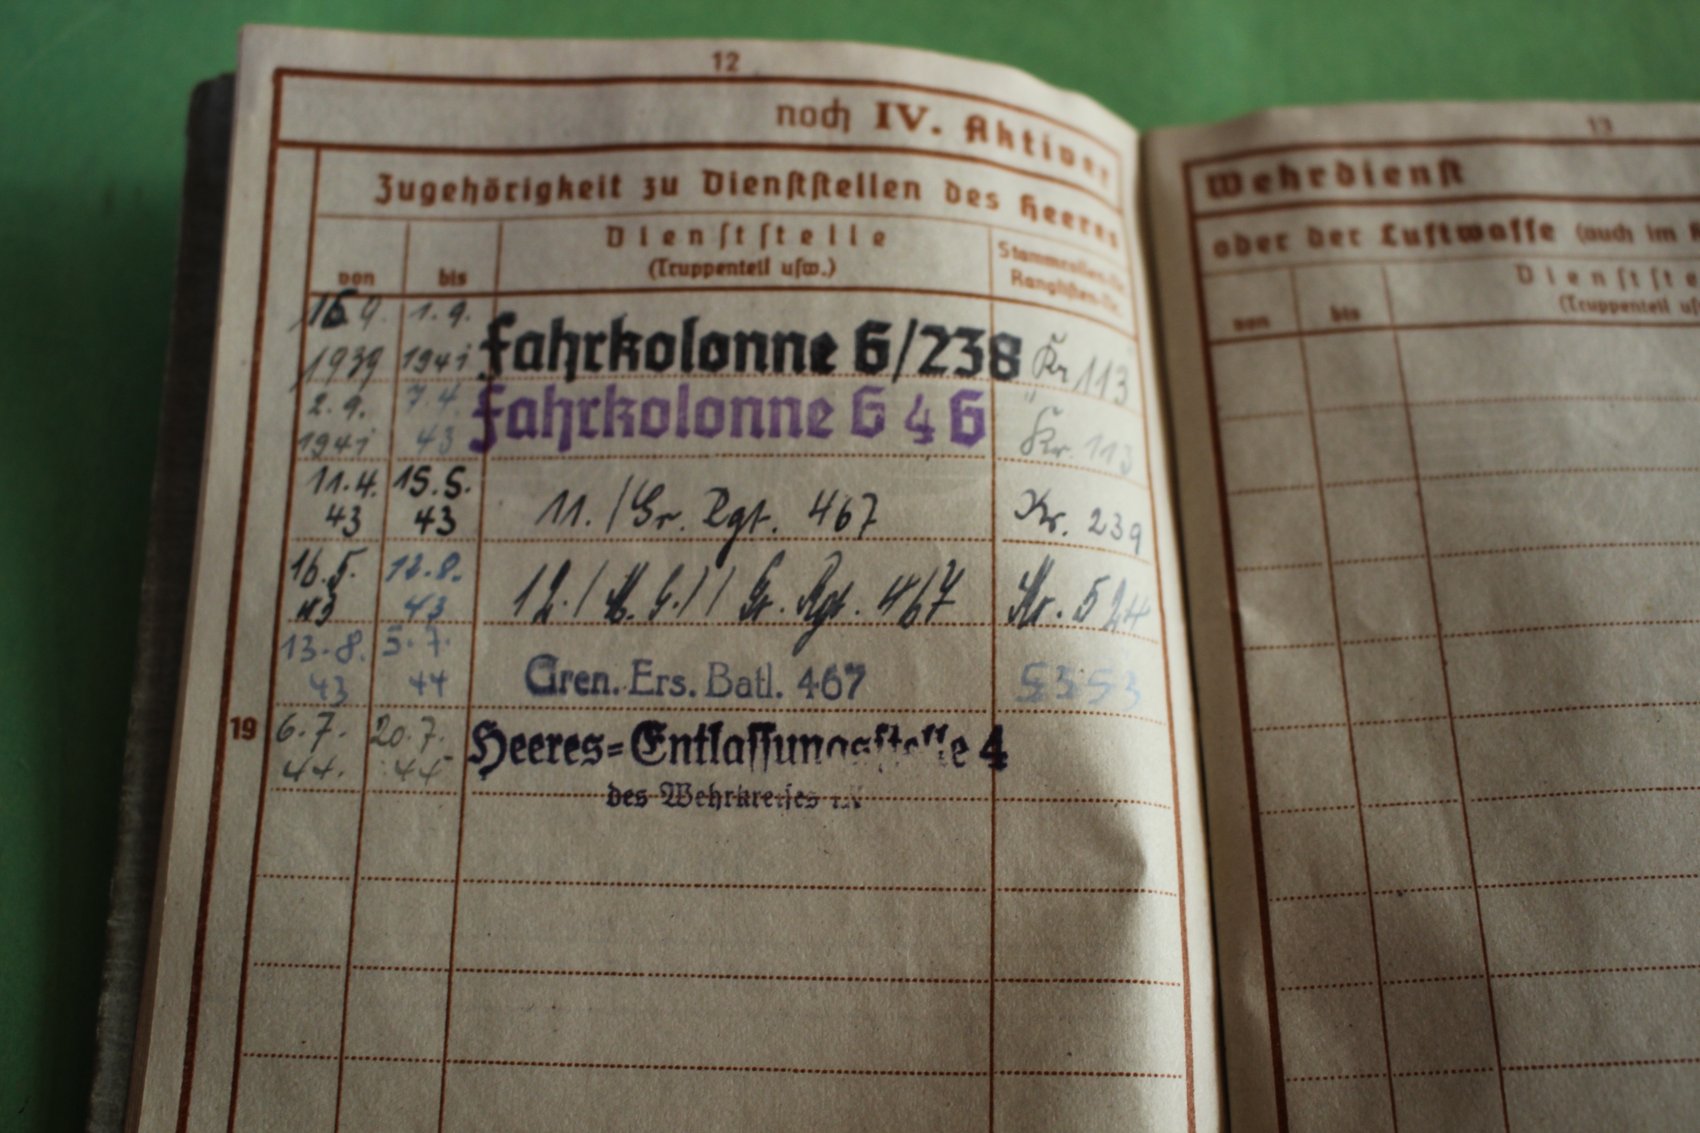 12
noch IV. Aktiver
Zugehörigkeit zu Dienststellen des Heeres
von bis Dienststelle (Truppenteil usw.) Stammrollen-Nr. Ranglisten-Nr.
16.9. 1939 1.9. 1941 Fahrkolonne 6/238 Kr 113
2.9. 1941 7.4. 43 Fahrkolonne 6 4 6 Kr. 113
11.4. 43 15.5. 43 11./Gr. Rgt. 467 Nr. 239
16.5. 43 12.8. 43 12./M.G./ Gr. Rgt. 467 Nr. 524
13.8. 43 5.7. 44 Gren. Ers. Batl. 467 5353
19 6.7. 44. 20.7. 44 Heeres=Entlassungsstelle 4
des Wehrkreises
13
Wehrdienst
oder der Luftwaffe (auch im
von bis Dienstste
(Truppenteil us